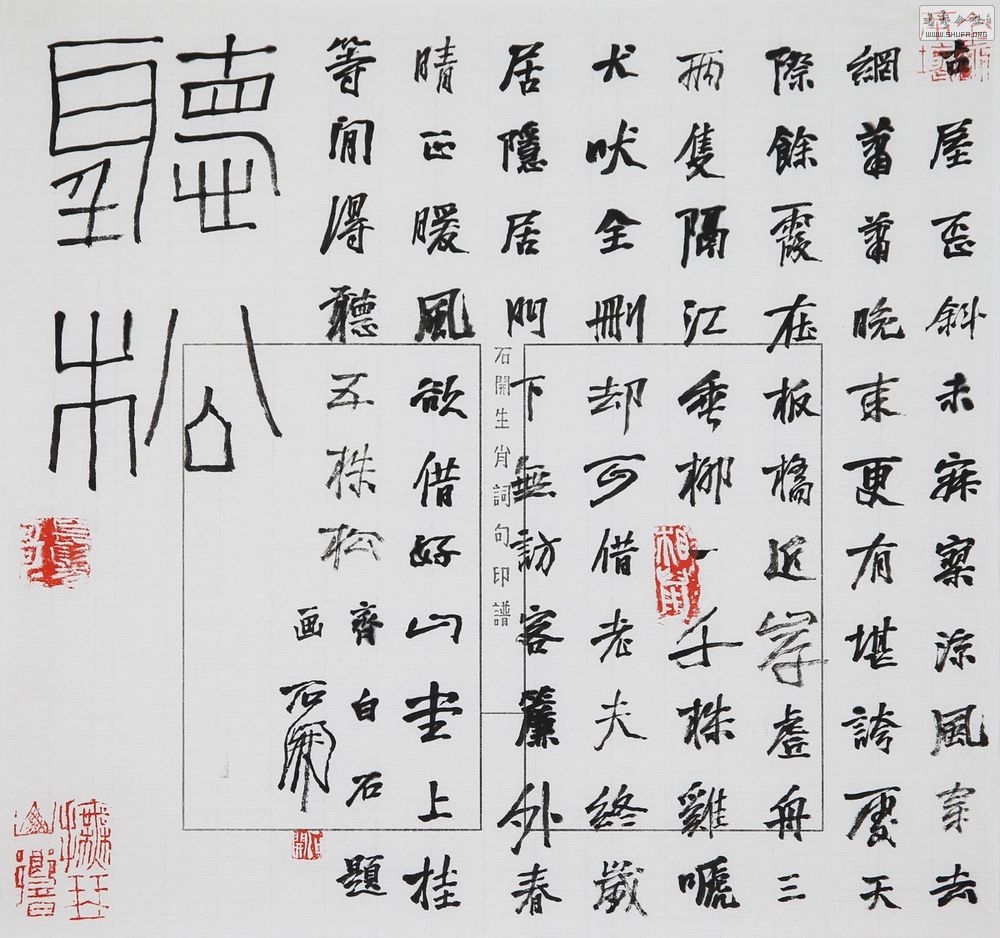 古屋歪斜未寂寥涼風来去
網蕭蕭晚来更有堪誇處天
際餘霞在板橋近岸虛舟三
兩隻隔江垂柳一千株雞唬
犬吠全刪却可借老夫終歲
居隱居門下無訪客簾外春
晴正暖風欲借好山堂上挂
等閒得聽五株松
齊白石題
画 石開
聽松
石開生肖詞句印譜
WWW.SHUFA.ORG